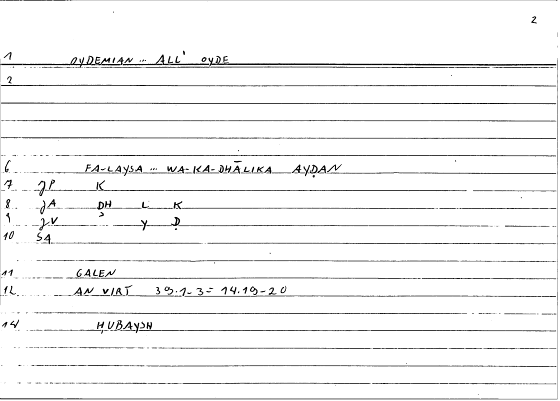 2
1 OYDEMIAN ... ALL' OYDE
2
6 FA-LAYSA ... WA-KA-DHĀLIKA AYḌAN
7 JP K
8 JA DH L K
9 JV ʾ Y Ḍ
10 SA
11 GALEN
12 AN VIRT 39.1-3 = 14.19-20
14 ḤUBAYSH